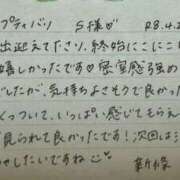 プティバリ S様♡ R8.4.2
出迎えてたさり、終始にこにこ
嬉しかったです♡密室感強め
でしたが、気持ちよさそうで良か
くっついて、いっぱい感じてもらえ
見られて良かったです!次回は
やしたいですね
新條